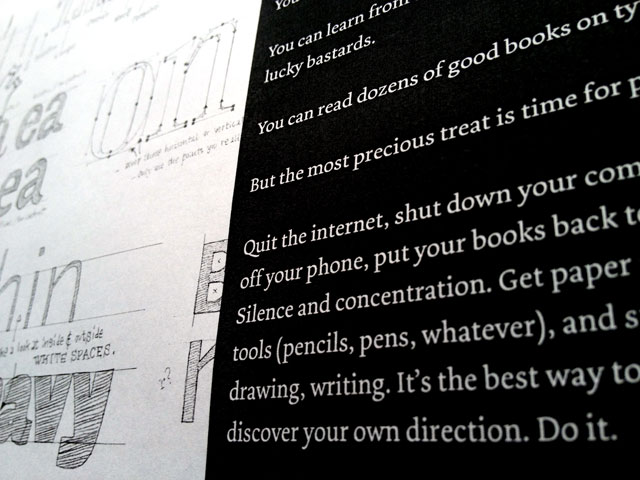 ea
ea
on
hin
inside & outside
WHITE SPACES.
avy
B
r?
You
You can learn from
lucky bastards.
You can read dozens of good books on ty
But the most precious treat is time for p
Quit the internet, shut down your com
off your phone, put your books back to
Silence and concentration. Get paper
tools (pencils, pens, whatever), and s
drawing, writing. It's the best way to
discover your own direction. Do it.